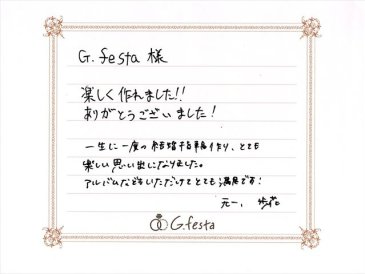 G.festa 様
楽しく作れました!!
ありがとうございました!
一生に一度の結婚指輪作り、とても
楽しい思い出になりました。
アルバムなどもいただけてとても満足です!
元一、歩花
G.festa